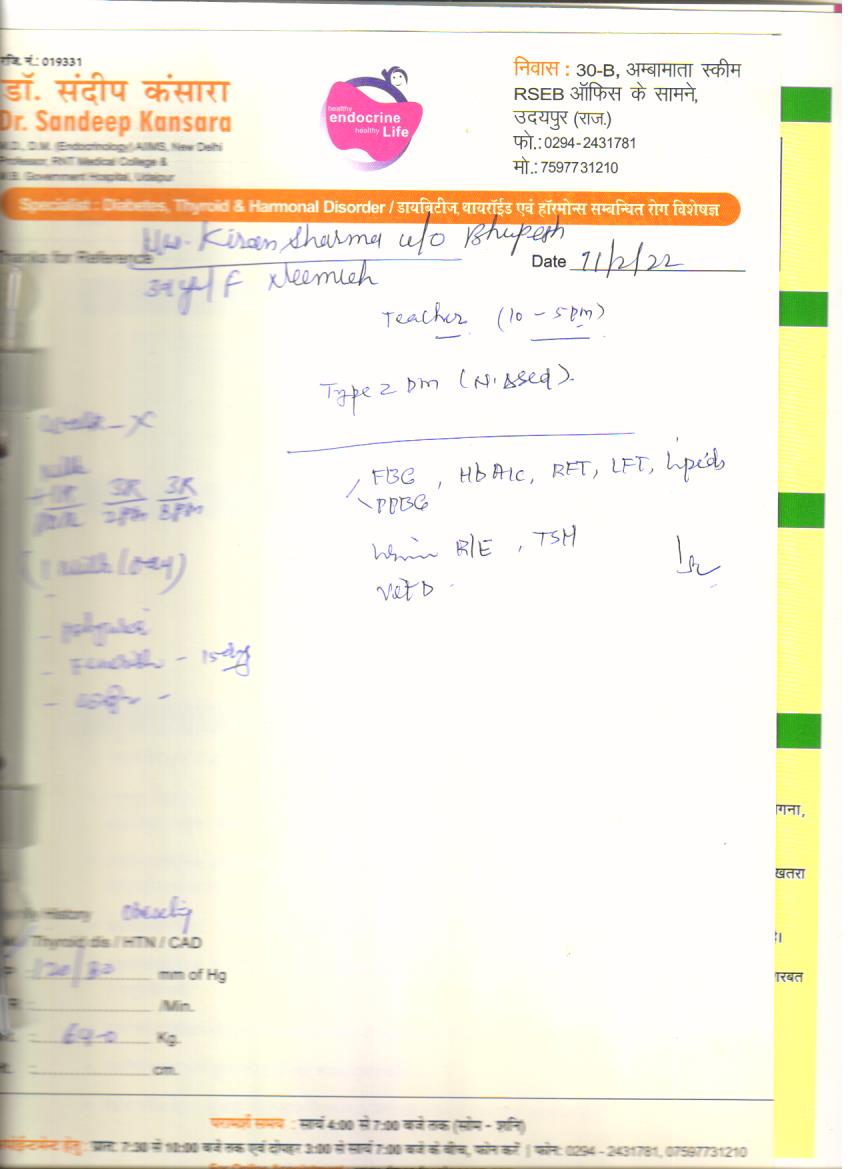 रजि. नं.: 019331
डॉ. संदीप कंसारा
Dr. Sandeep Kansara
M.D., D.M. (Endocrinology) AIIMS, New Delhi
Professor, RNT Medical College &
M.B. Government Hospital, Udaipur
healthy
endocrine
healthy Life
निवास : 30-B, अम्बामाता स्कीम
RSEB ऑफिस के सामने,
उदयपुर (राज.)
फो.:0294-2431781
मो.:7597731210
Specialist : Diabetes, Thyroid & Harmonal Disorder / डायबिटीज, थायरॉईड एवं हॉरमोन्स सम्बन्धित रोग विशेषज्ञ
Thanks for Reference Kiran Sharma w/o Bhupesh
Date 11/2/22
F Neemuch
Teacher (10 - 5 pm)
Type 2 DM
Walk - X
milk
3R 3R
2pm 8pm
(1 milk / day)
FBG, HbA1c, RFT, LFT, lipids
PPBG
R/E, TSH
Vit D
- 15 day
Family History Obesity
Thyroid dis / HTN / CAD
120/80 mm of Hg
/Min.
64.0 Kg.
cm.
गना,
खतरा
है।
शरबत
परामर्श समय : सायं 4:00 से 7:00 बजे तक (सोम - शनि)
प्रात: 7:30 से 10:00 बजे तक एवं दोपहर 3:00 से सायं 7:00 बजे के बीच, फोन करें | फोन: 0294 - 2431781, 07597731210